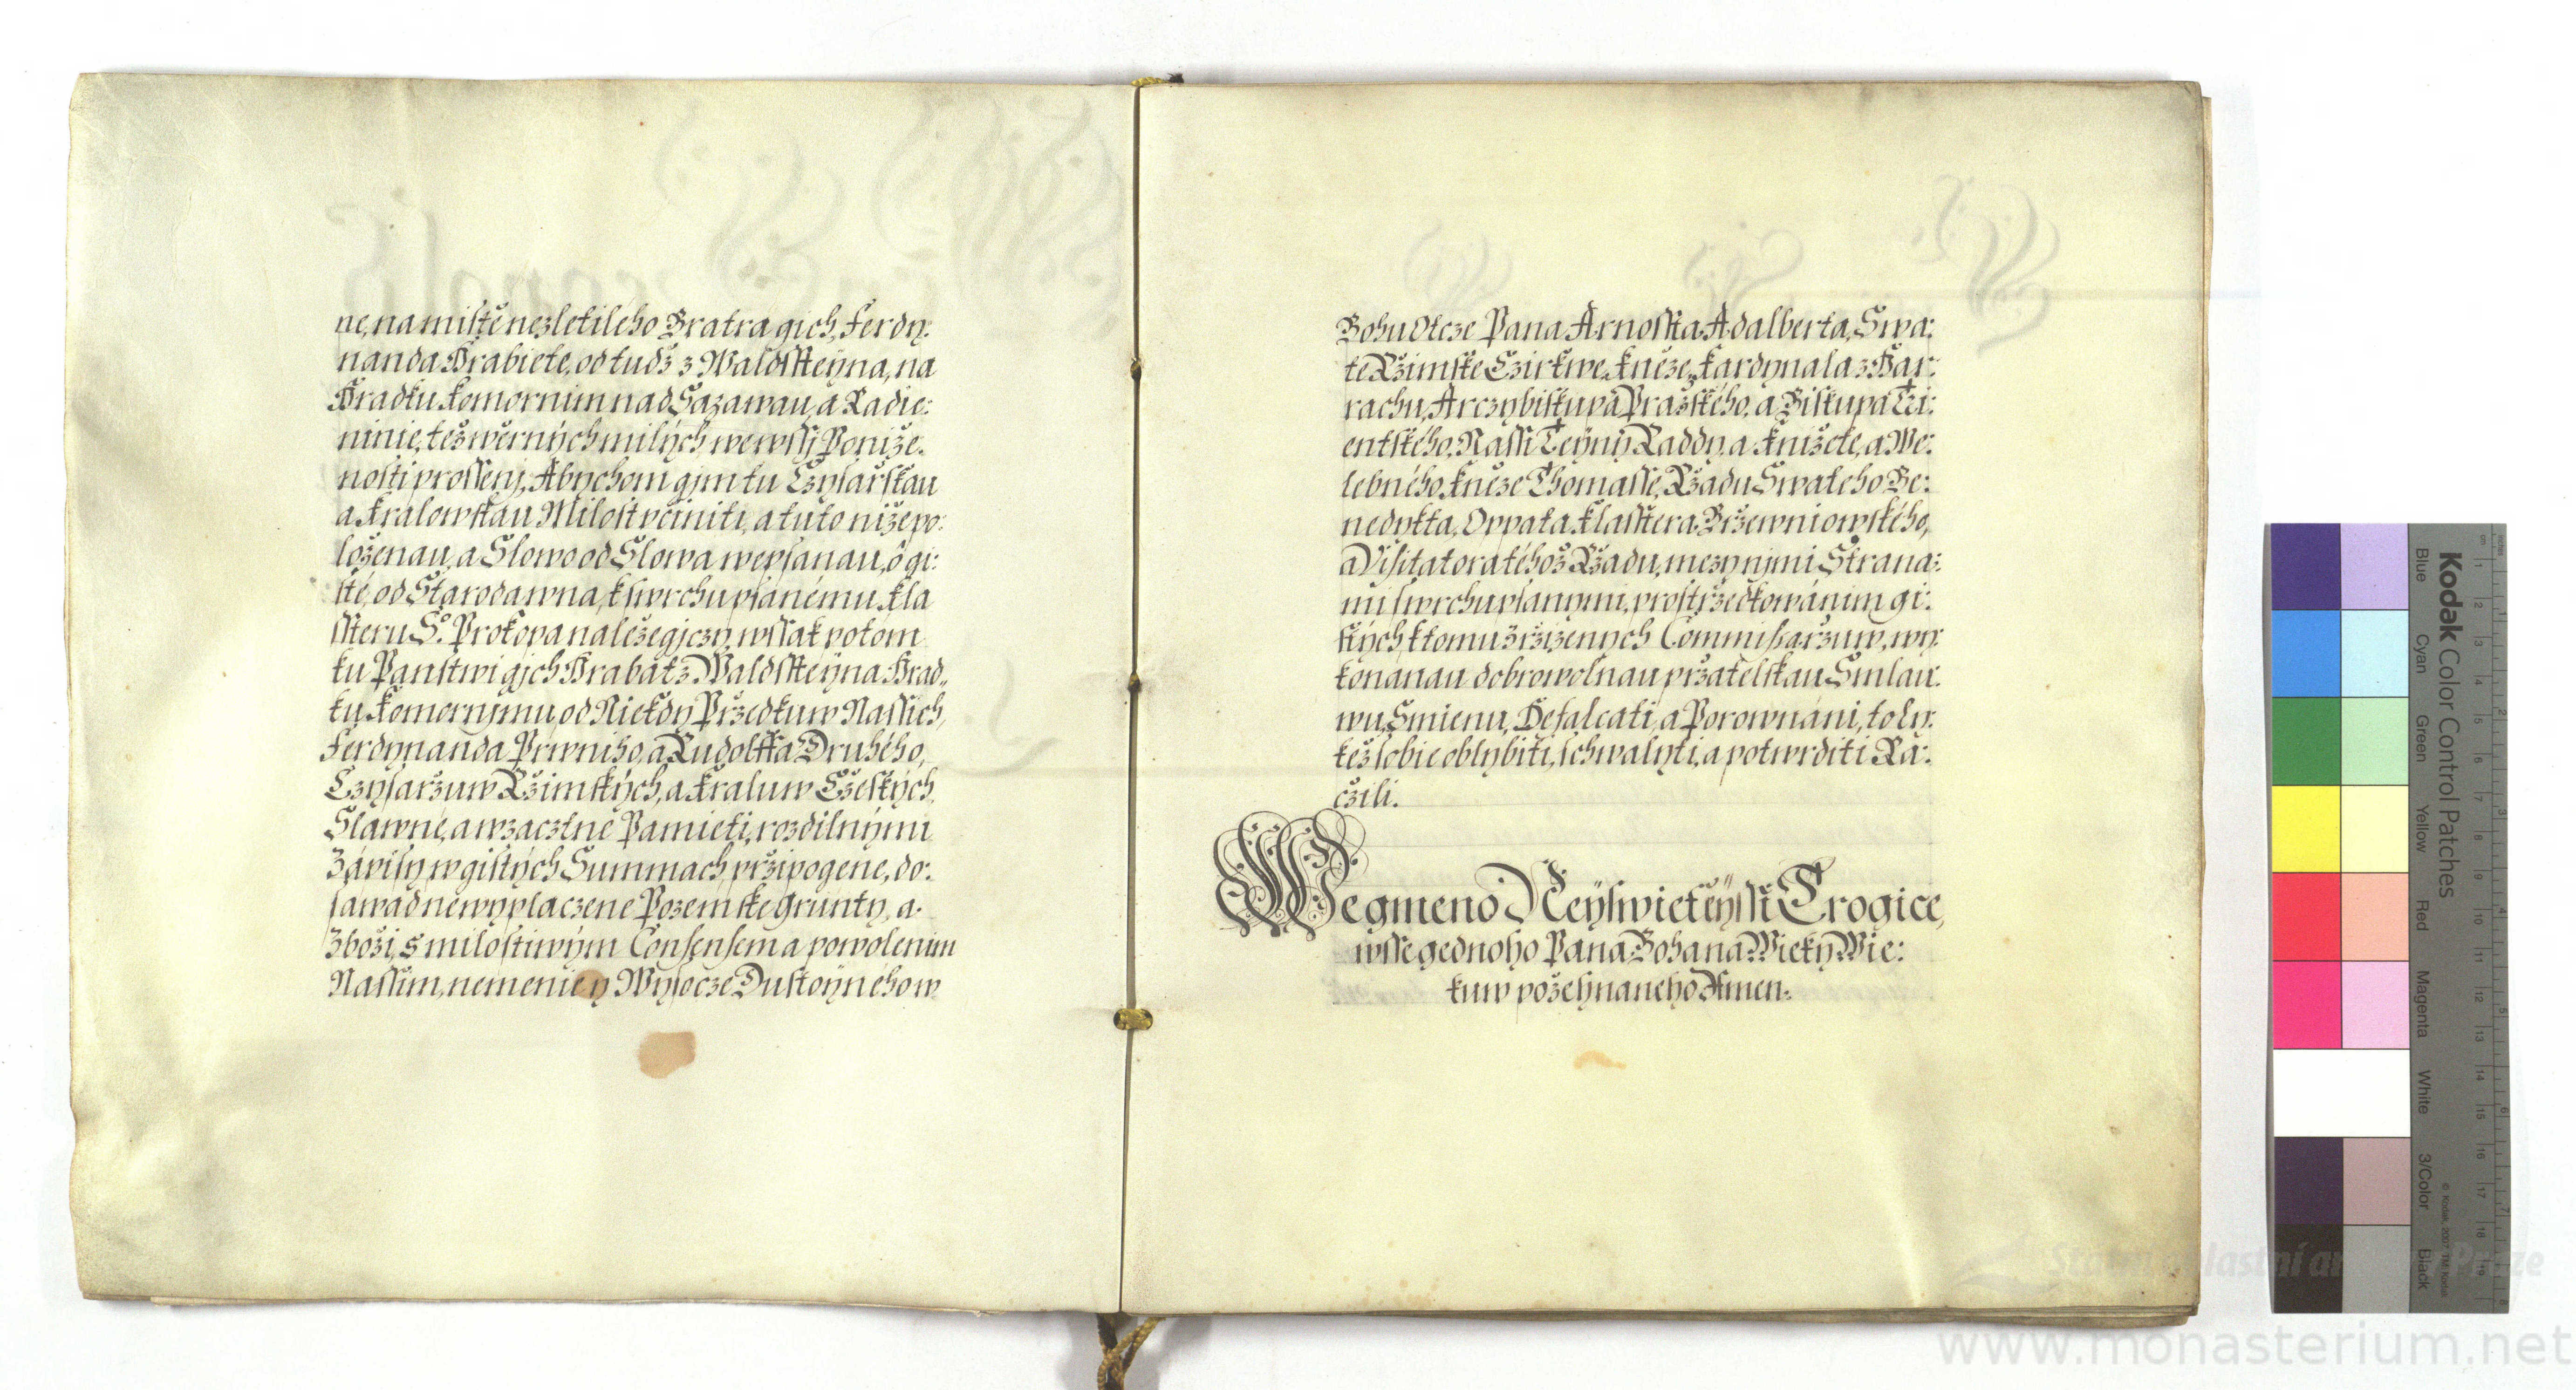 ne, na mistě nezletileho Bratra gich, Ferdy:
nanda Hrabiete, od tudž z Waldſſteyna, na
Hradku Komornim nad Sazawau, a Radie:
ninie, též wěrných milých we wſſj Poniže:
noſti proſſenj, Abychom gjm tu Czyſařſkau
a Kralowſkau Miloſt včiniti, a tuto niže po:
loženau, a Slowo od Slowa wepſanau, o gi:
ſté, od Starodawna, k ſwrchu pſanému Kla
ſſteru S.º Prokopa naležegjczy, wſſak potom
ku Panſtwi gjch Hrabat z Waldſſteyna Hrad„
ku Komornymu, od Niekdy Pržedkuw Naſſich,
Ferdynanda Prwniho, a Rudolffa Druhého,
Czyſaržuw Ržimſkých, a Kraluw Cžeſkých,
Slawné, a wzaczlné Pamieti, rozdilnými
Zápiſy, w giſtých Summach pržipogene, do:
ſawad newyplaczene Pozemſke Grunty, a
Zboži, s miloſtiwým Conſenſem a powolenim
Naſſim, nemenie y Wyſocze Duſtoyného w
Bohu Otcze Pana Arnoſſta Adalberta, Swa:
te Ržimſke Czirkwe Kněze, Kardynala z Har:
rachu, Arczybiſkupa Pražſkého, a Biſkupa Tri:
entſkého, Naſſi Teyný Raddy, a Knižete, a We:
lebného Kněze Thomaſſe, Ržadu Swateho Be:
nedykta, Oppata Klaſſtera Bržewniowſkého,
a Viſitatora téhož Ržadu, mezy nјmi Strana:
mi ſwrchu pſanymi, proſtržedkowánim gi:
ſtých k tomu zržizenych Commiſſaržuw, wy:
konanau dobrowolnau pržatelſkau Smlau:
wu, Smienu, Defalcati, a Porownáni, toly:
kéž ſobie oblybiti, ſchwalyti, a potwrditi Ra:
čzili.
We gmeno Neyſwietěyſſi Trogice,
wſſe gednoho Pana Boha na Wieky Wie:
kuw požehnaneho Amen.
Kodak Color Control Patches
Blue
Cyan
Green
Yellow
Red
Magenta
White
3/Color
Black
© Kodak, 2007 TM: Kodak
www.monasterium.net